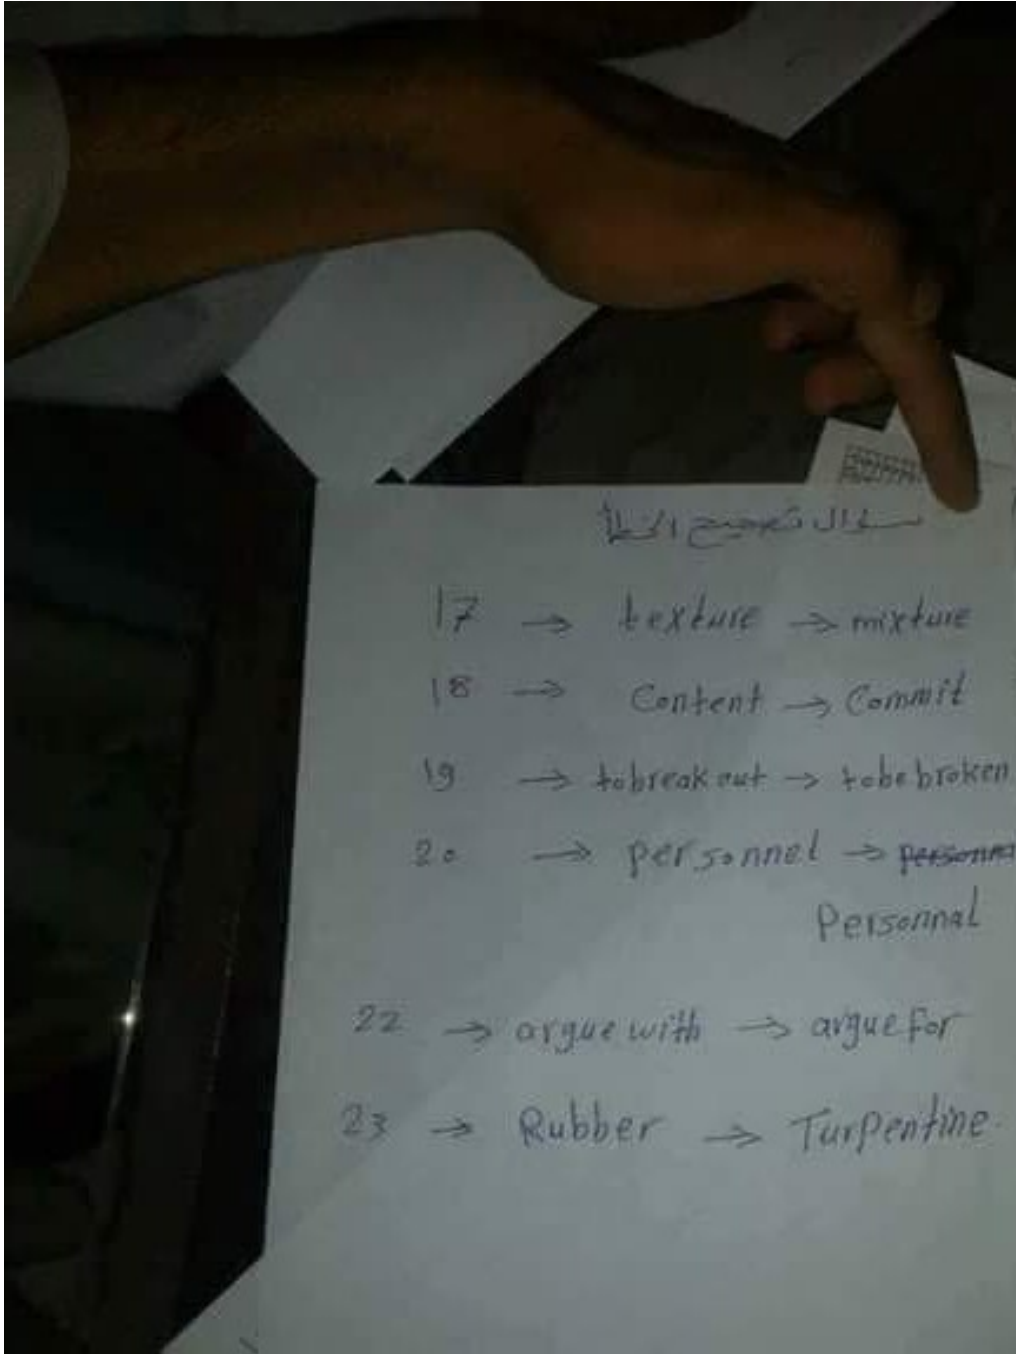 سؤال تصحيح الخطأ
17 → texture → mixture
18 → Content → Commit
19 → to break out → to be broken
20 → personnel → personna
Personnal
22 → argue with → argue for
23 → Rubber → Turpentine.